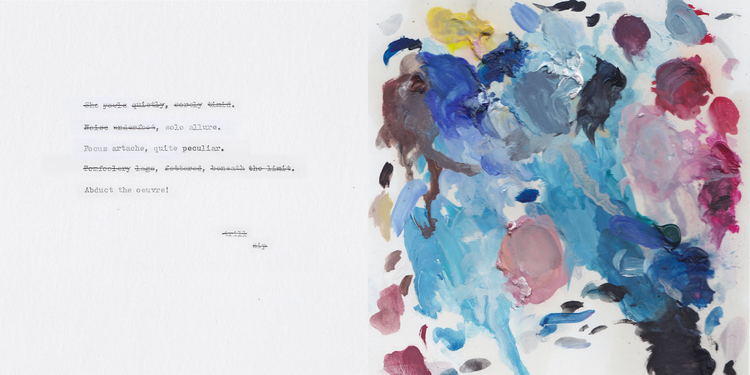 She quietly, sorely timid.
Noise underfoot, solo allure.
Focus artache, quite peculiar.
Tomfoolery lags, fettered, beneath the limit.
Abduct the oeuvre!